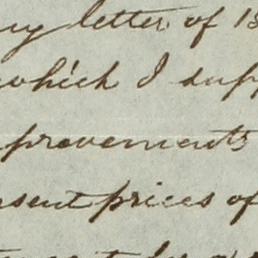 my letter of 13
which I supp
provements
sent prices of